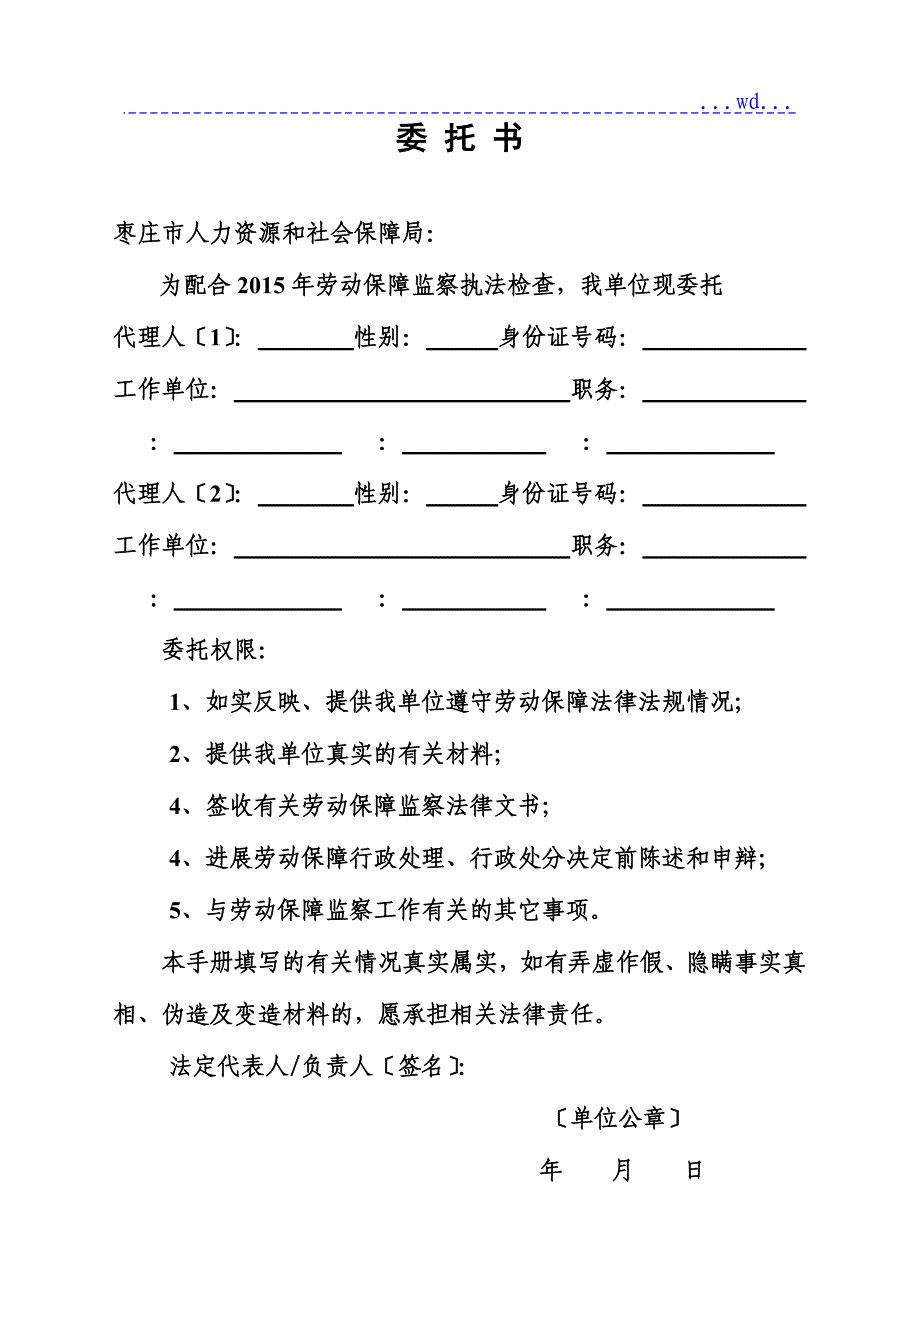 ...wd...
委 托 书
枣庄市人力资源和社会保障局：
为配合 2015 年劳动保障监察执法检查，我单位现委托
代理人〔1〕：________性别：______身份证号码：______________
工作单位：____________________________职务：______________
：______________ ：____________ ：______________
代理人〔2〕：________性别：______身份证号码：______________
工作单位：____________________________职务：______________
：______________ ：____________ ：______________
委托权限：
1、如实反映、提供我单位遵守劳动保障法律法规情况；
2、提供我单位真实的有关材料；
4、签收有关劳动保障监察法律文书；
4、进展劳动保障行政处理、行政处分决定前陈述和申辩；
5、与劳动保障监察工作有关的其它事项。
本手册填写的有关情况真实属实，如有弄虚作假、隐瞒事实真
相、伪造及变造材料的，愿承担相关法律责任。
法定代表人/负责人〔签名〕：
〔单位公章〕
年 月 日